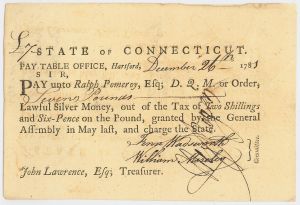 £7 STATE OF CONNECTICUT.
PAY TABLE OFFICE, Hartford, December 26th 1781
SIR,
PAY unto Ralph Pomeroy, Esq; D. Q. M. or Order,
Seven Pounds
Lawful Silver Money, out of the Tax of Two Shillings
and Six-Pence on the Pound, granted by the General
Assembly in May last, and charge the State.
Wadsworth
William Moseley
Committee.
John Lawrence, Esq; Treasurer.